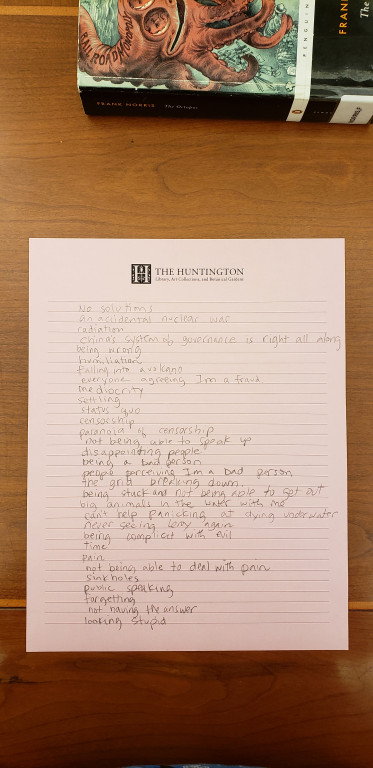 RAILROAD MONOPOLY
PENGUIN
FRANK NORRIS The Octopus
FRAN
The
THE HUNTINGTON
Library, Art Collections, and Botanical Gardens
No solutions
an accidental nuclear war
radiation
China's system of governance is right all along
being wrong
humiliation
falling into a volcano
everyone agreeing I'm a fraud
mediocrity
settling
status quo
censorship
paranoia of censorship
not being able to speak up
disappointing people
being a bad person
people perceiving I'm a bad person
the grid breaking down.
being stuck and not being able to get out
big animals in the water with me
can't help panicking at dying underwater
never seeing again
being complicit with evil
time
pain
not being able to deal with pain
sinkholes
public speaking
forgetting
not having the answer
looking stupid